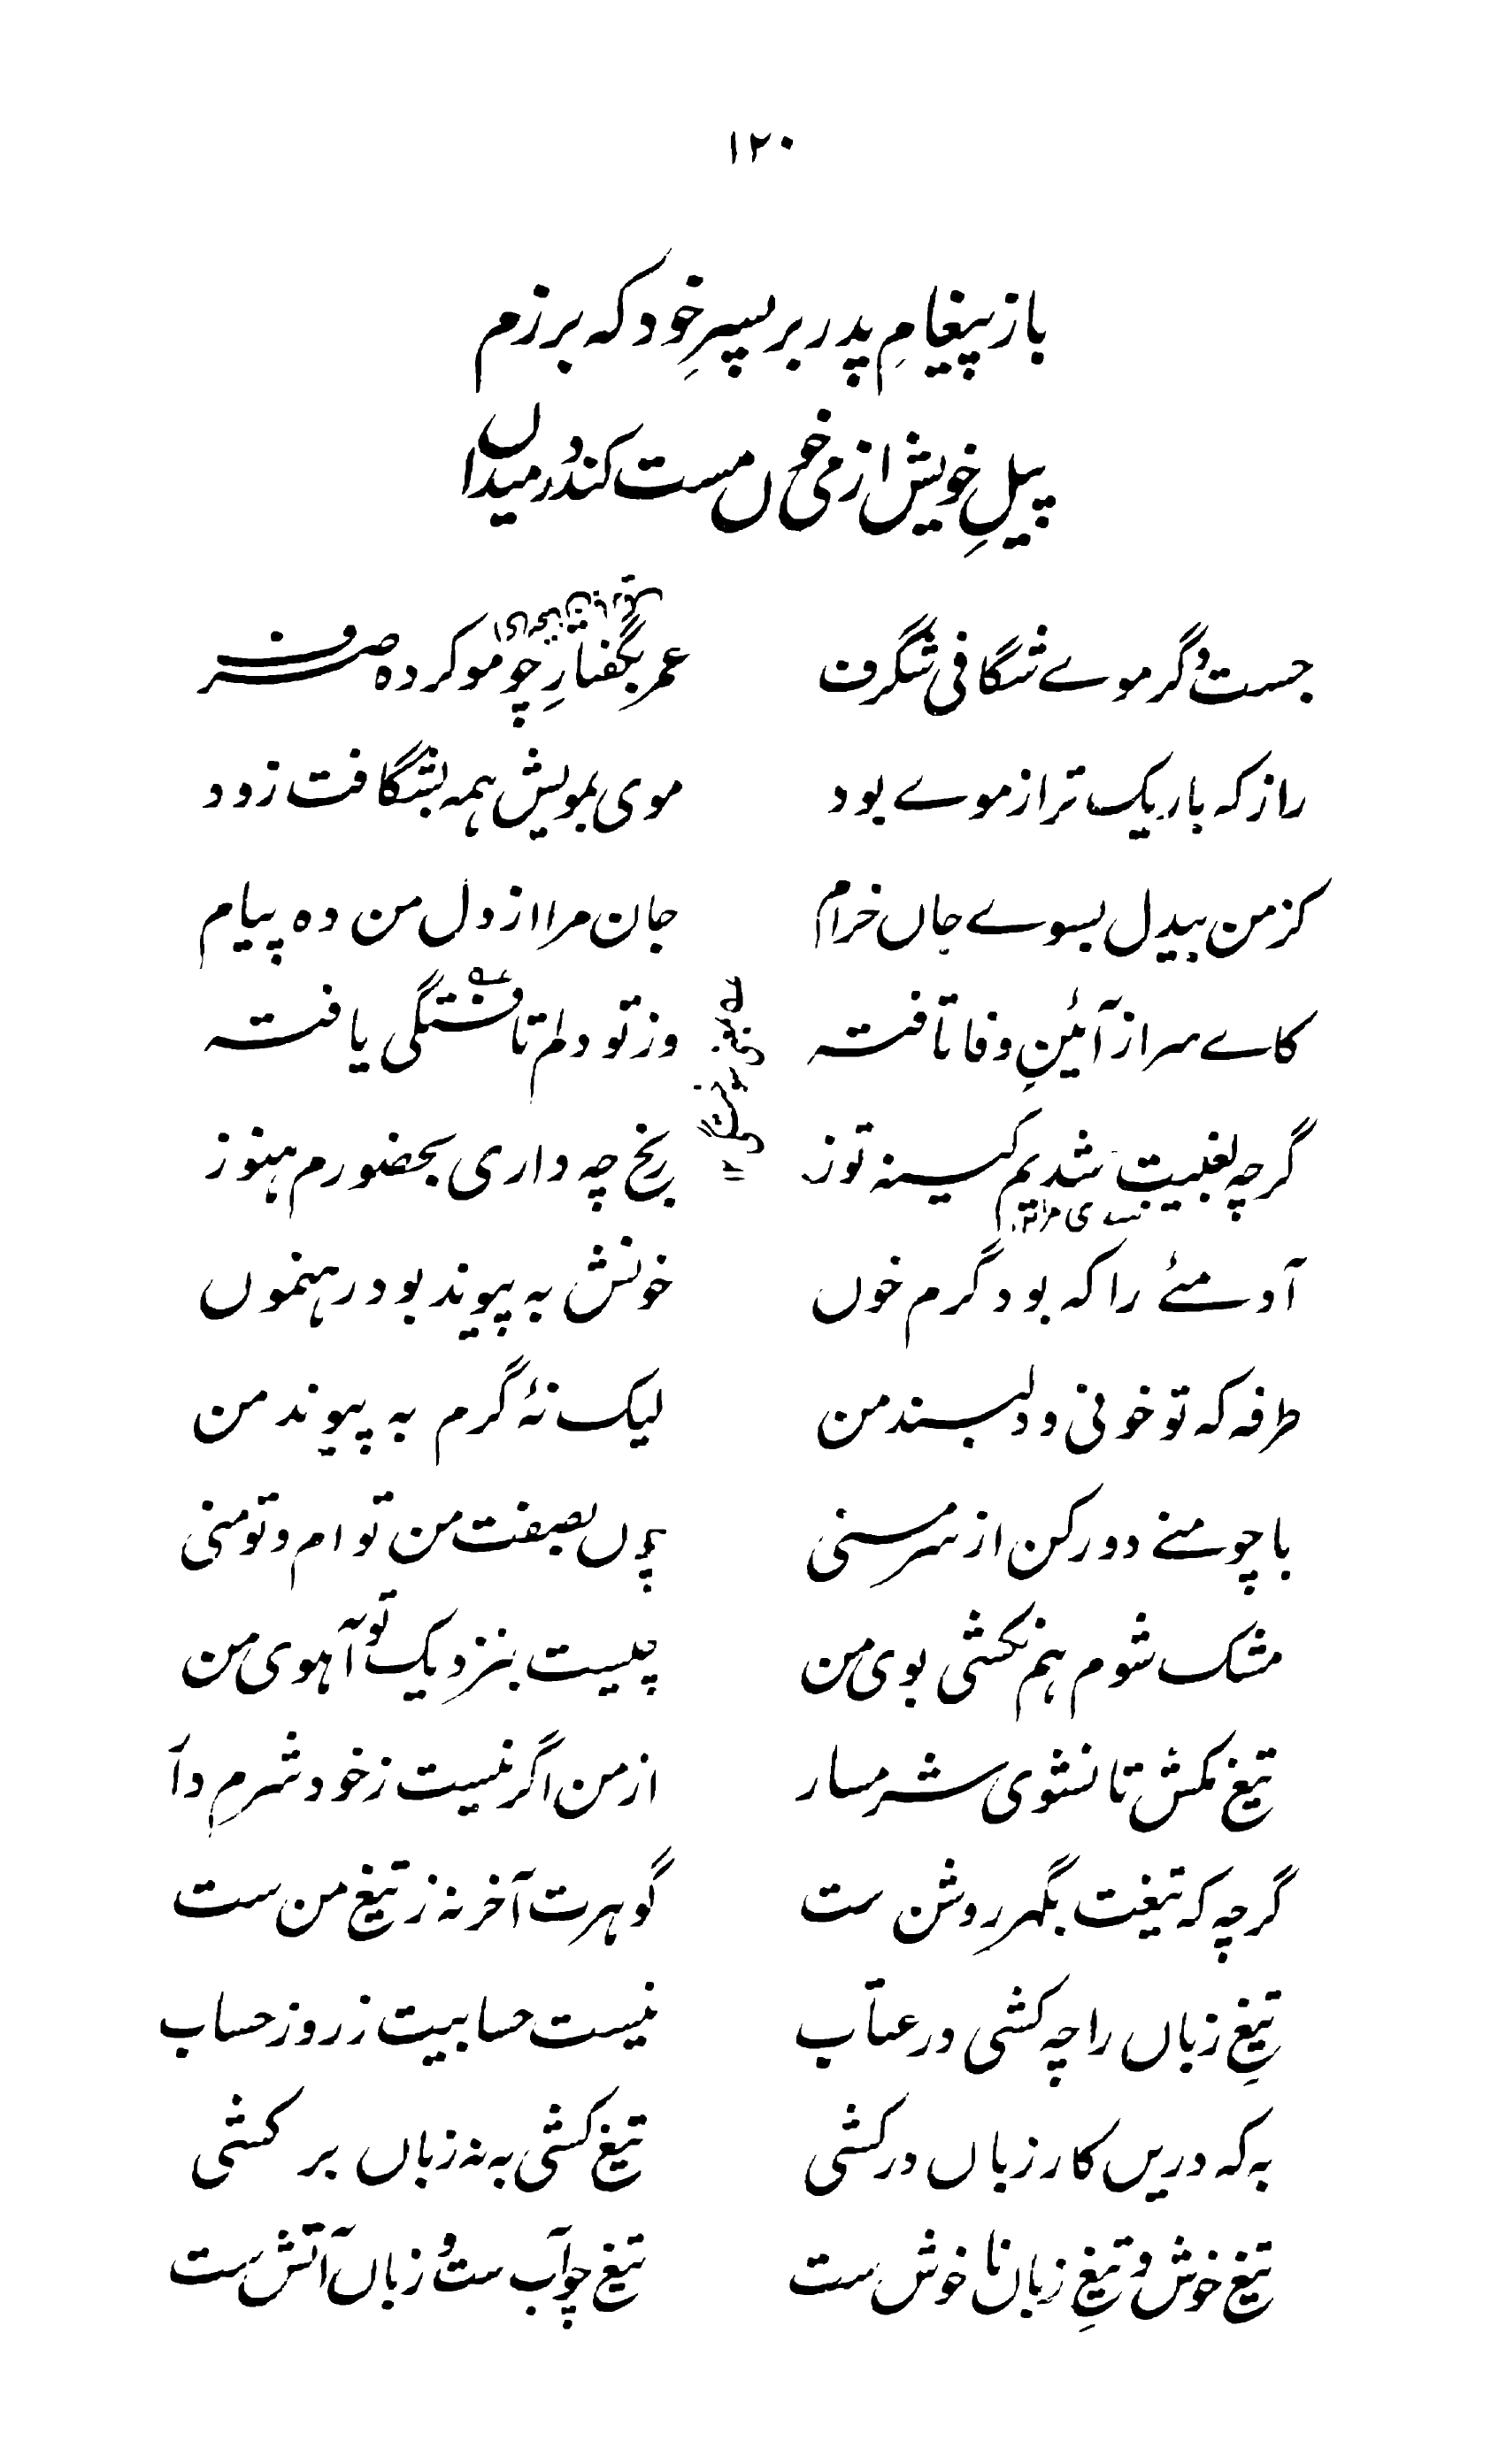 ۱۲۰
باز پیغامِ پدر بر پسرِ خود که برزم
پیلِ خویش از می خوں مست کند در میداں
جست دگر موے شگافی شگرف عمر بگفتارِ چو مو کرده صرف
راز که باریک تر از موے بود موی بمویش همه بشگافت زود
کز من بیدل بسوے جاں خرام جان مرا از دل من ده پیام
کاے سر از آئینِ وفا تافته وز تو دلم تافتگی یافته
گرچه بغیبت شدیم کینه توز رنج چه داری بحضورم هنوز
آدمئے را که بود گرم خوں خونش به پیوند بود رهنموں
طرفه که تو خونی و دلبند من لیک نۂ گرم به پیوند من
با چو منے دور کن از سر منی چوں بصفت من تو ام و تو منی
مشک شوم هم نکشی بوی من چیست بنزدیک تو آهوی من
تیغ مکش تا نشوی شرمسار از من اگر نیست ز خود شرم دآ
گرچه که تیغت بگهر روشن ست گوهرت آخر نه ز تیغ من ست
تیغِ زباں را چه کشی در عتاب نیست حسابیت ز روز حساب
به که دریں کار زباں درکشی تیغ کشی به نه زباں برکشی
تیغ خوش و تیغِ زباں ناخوش ست تیغ چو آب ست و زباں آتش ست